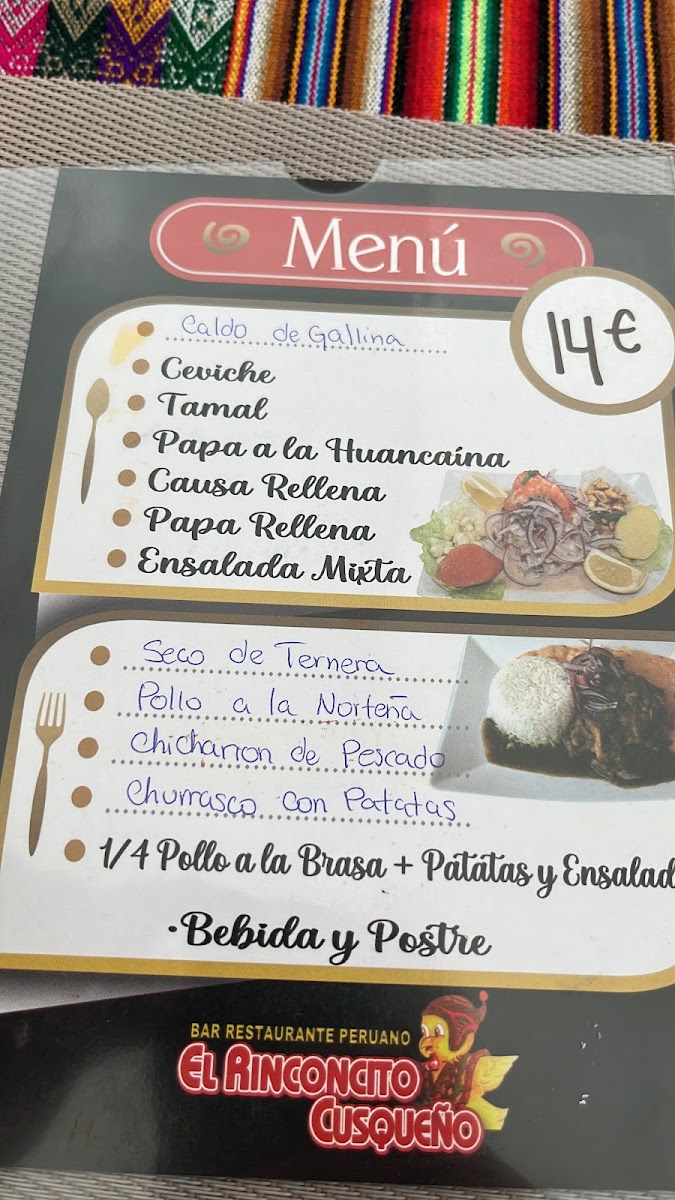 Menú
14€
Caldo de Gallina
Ceviche
Tamal
Papa a la Huancaína
Causa Rellena
Papa Rellena
Ensalada Mixta
Seco de Ternera
Pollo a la Norteña
Chicharron de Pescado
Churrasco con Patatas
1/4 Pollo a la Brasa + Patatas y Ensalad
·Bebida y Postre
BAR RESTAURANTE PERUANO
EL RINCONCITO
CUSQUEÑO